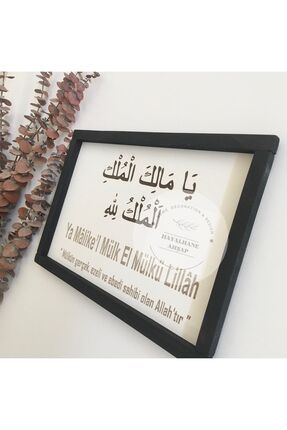 يَا مَالِكَ الْمُلْكِ
اَلْمُلْكُ لِلّٰهِ
Ya Mâlike'l Mülk El Mülkü Lillâh
"Mülkün gerçek, ezeli ve ebedi sahibi olan Allah'tır"
DECORATION & DESIGN
HAYALHANE
AHŞAP